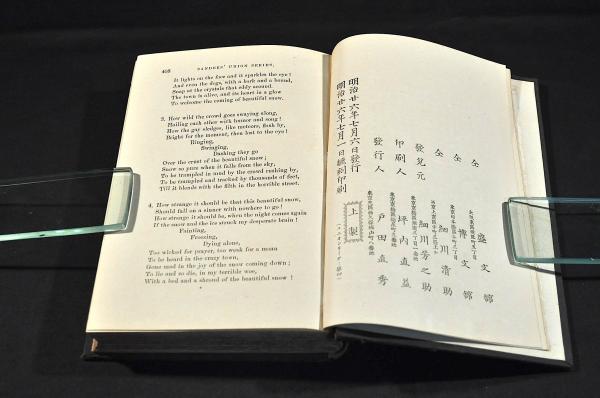 408 SANDERS' UNION SERIES.
It lights on the face and it sparkles the eye!
And even the dogs, with a bark and a bound,
Snap at the crystals that eddy around.
The town is alive, and its heart in a glow
To welcome the coming of beautiful snow.
3. How wild the crowd goes swaying along,
Hailing each other with humor and song!
How the gay sledges, like meteors, flash by,
Bright for the moment, then lost to the eye!
Ringing,
Swinging,
Dashing they go
Over the crust of the beautiful snow;
Snow so pure when it falls from the sky,
To be trampled in mud by the crowd rushing by,
To be trampled and tracked by thousands of feet,
Till it blends with the filth in the horrible street.
4. How strange it should be that this beautiful snow,
Should fall on a sinner with nowhere to go!
How strange it should be, when the night comes again
If the snow and the ice struck my desperate brain!
Fainting,
Freezing,
Dying alone,
Too wicked for prayer, too weak for a moan
To be heard in the crazy town,
Gone mad in the joy of the snow coming down;
To lie and so die, in my terrible woe,
With a bed and a shroud of the beautiful snow!
仝 盛文館
仝 博文館
仝 細川清助
發兌元 細川芳之助
印刷人 坪内直益
發行人 戸田直秀
上製
明治廿六年七月六日發行
明治廿六年七月一日飜刻印刷